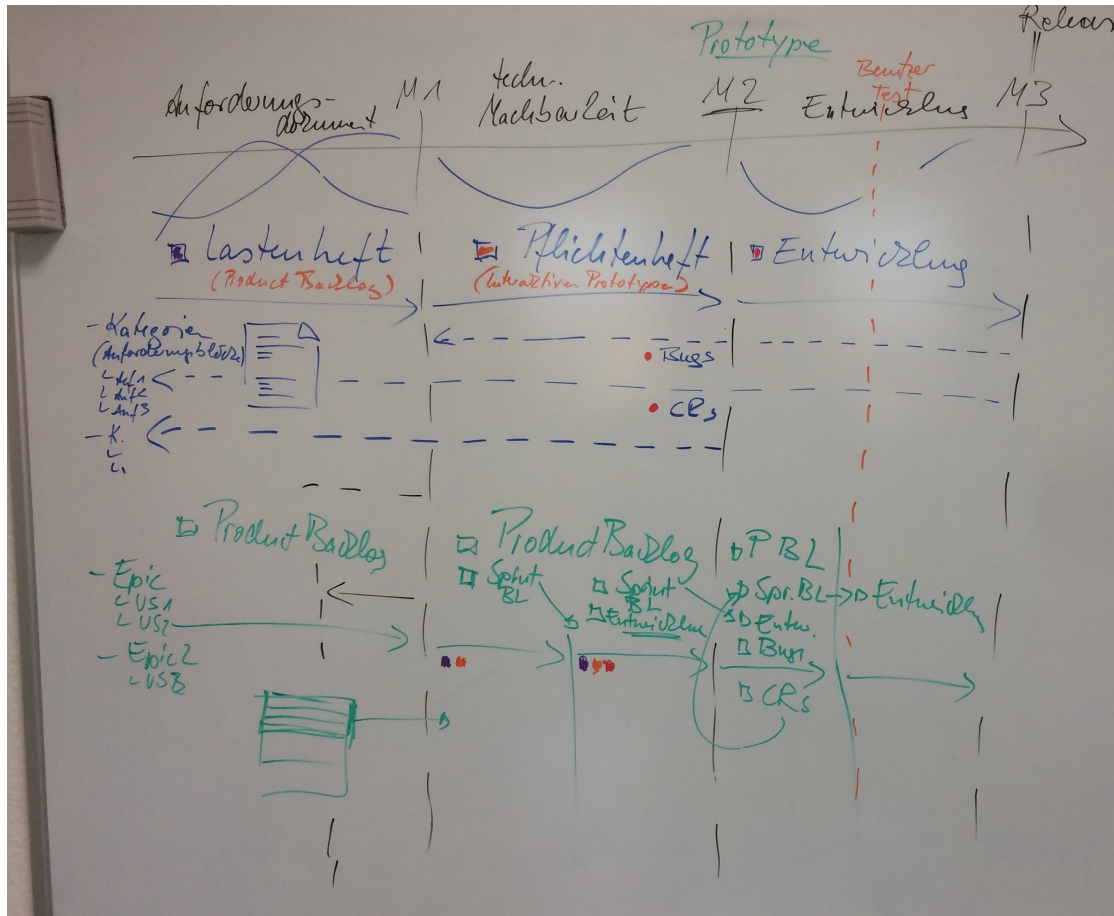 Release
Prototype
Benutzer
Test
Anforderungs-
dokument
M1
techn.
Machbarkeit
M2
Entwicklung
M3
Lastenheft
(Product Backlog)
Pflichtenheft
(Interaktiver Prototype)
Entwicklung
- Kategorien
(Anforderungsblöcke)
Anf1
Anf2
Anf3
- K.
Bugs
CRs
Product Backlog
- Epic
US1
US2
- Epic2
US3
Product Backlog
Sprint
BL
Sprint
BL
Entwicklung
PBL
Spr.BL
Entw.
Bugs
CRs
Entwicklung